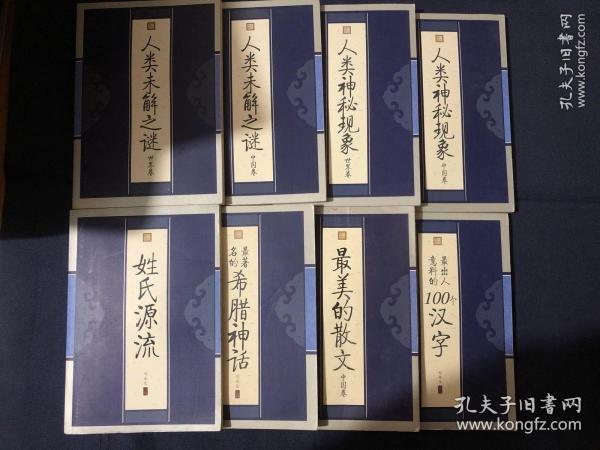 人类未解之谜
世界卷
人类未解之谜
中国卷
人类神秘现象
世界卷
人类神秘现象
中国卷
姓氏源流
最著名的
希腊神话
最美的散文
中国卷
最出人
意料的
100个
汉字
孔夫子旧书网
www.kongfz.com
孔夫子旧书网
www.kongfz.com